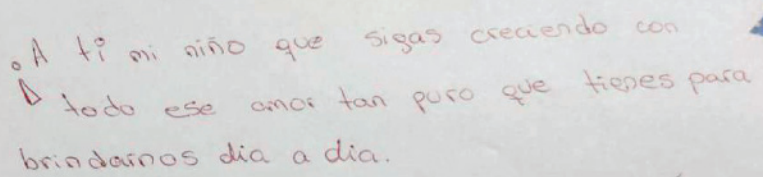 .A ti mi niño que sigas creciendo con
todo ese amor tan puro que tienes para
brindarnos dia a dia.